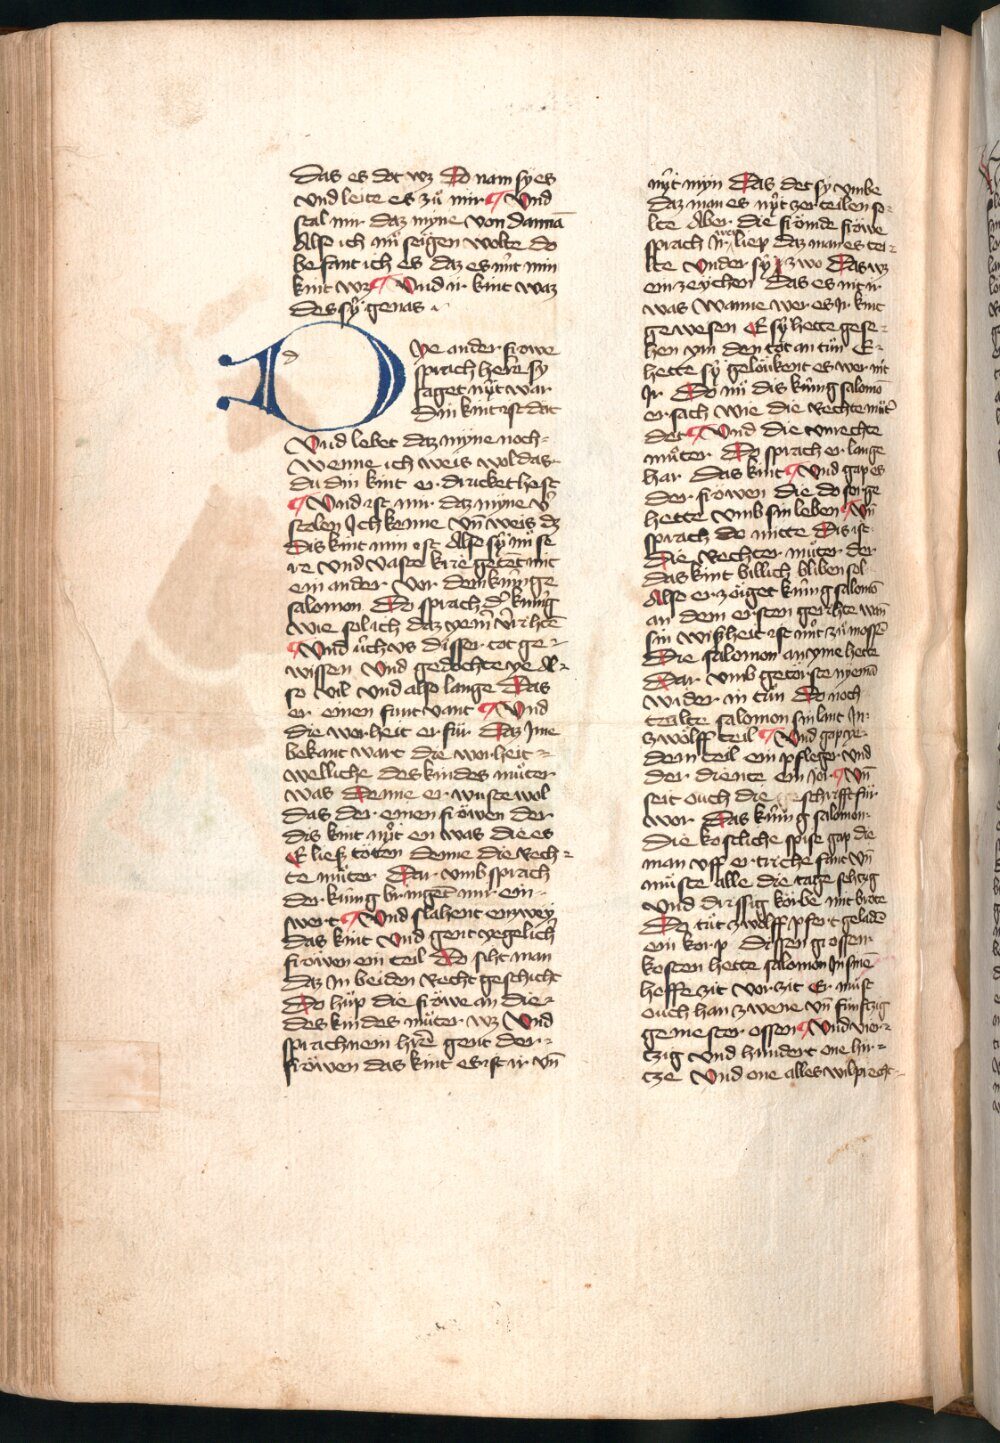 das es dot wz Do nam sy es
vnd leite es zů mir ¶ Vnd
stal mir daz myne von dannā
Alse ich nů seẏgen wolte do
befant ich es daz es nit min
kint wz ¶ Vnd ir kint waz
des sẏ genas .
Dye ander frowe
sprach herre sy
saget nẏt war
din kint ist dot
Vnd lebet daz myne noch
wenne ich weis wol das
du din kint erdrucket hest
¶ Vnd ist mir daz myne v̄
stolen Ich kenne vn̄ weis dz
dis kint min ist Alse sẏ nů se
re vnd vaste kriegetent mit
ein ander vor dem kúnige
salomon Do sprach d' kúnig
wie sol ich daz
¶ Vnd vs diser tot ge
wissen Vnd gedochte ye al
so vil vnd also lange Das
er einen funt vant ¶ Vnd
die worheit er fůr Daz ime
bekant wart die worheit
welliche des kindes můter
was Denne er wuste wol
das der einen frȯwen der
dis kint nẏt en was die es
E liesz tȯten denne die rech
te můter Dar vmb sprach
der kúnig bringent mir ein
swert ¶ Vnd slahent enzwey
das kint Vnd gent yegelich
frȯwen ein teil Do siht man
daz in beiden recht geschicht
Do hůp die frȯwe an die
des kindes můter wz Vnd
sprach nein hre gent der
frȯwen das kint es ist ir vn̄
nẏt myn Das det sy vmbe
daz man es nẏt zerteilen so
lte Aber die frȯmde frȯwe
sprach Ir wer liep daz man es tei
lte vnder sy zwo Das wz
ein zeychen das es nit ir
was wanne wer es Ir kint
gewesen E sẏ hette gese
hen ym den tot an tůn E
hette sẏ gelȯukent es wer nit
Ir Do nů dis kúnig salomō
ersach wie die rechte můt'
det ¶ Vnd die vnrechte
můter Do sprach er lange
har das kint ¶ Vnd gap es
der frȯwen die do sorge
hette vmb sin leben ¶ Vn̄
sprach do mitte Dis ist
die rechter můter der
das kint billich bliben sol
Also erzȯiget kúnig salomō
an dem ersten gerihte wan̄
sin wiszheit ist nit zů mossē
Die salomon an yme hette
Dar vmb getorste nyemā
wider in tůn Do noch
teilte salomon sin lant In
zwȯlff teil ¶ Vnd gap ye
dem teil ein pfleger vnd
der diente ein Jor ¶ Vn̄
seit ouch die geschrifft fúr
wor Das kúnig salomon
die kostliche spise gap die
man vff ertriche fant vn̄
můste alle die tage sehtzig
vnd drissig kȯrbe mit brote
Do tůt zwȯlff pfert geladē
ein korp Dissen grossen
kosten hette salomon In sinē
hoffe zit vor zit Er můst
ouch han zwene vn̄ fúnftzig
gemester ossen ¶ Vnd vier
tzig vnd hundert one hir
tze Vnd one alles wilprecht